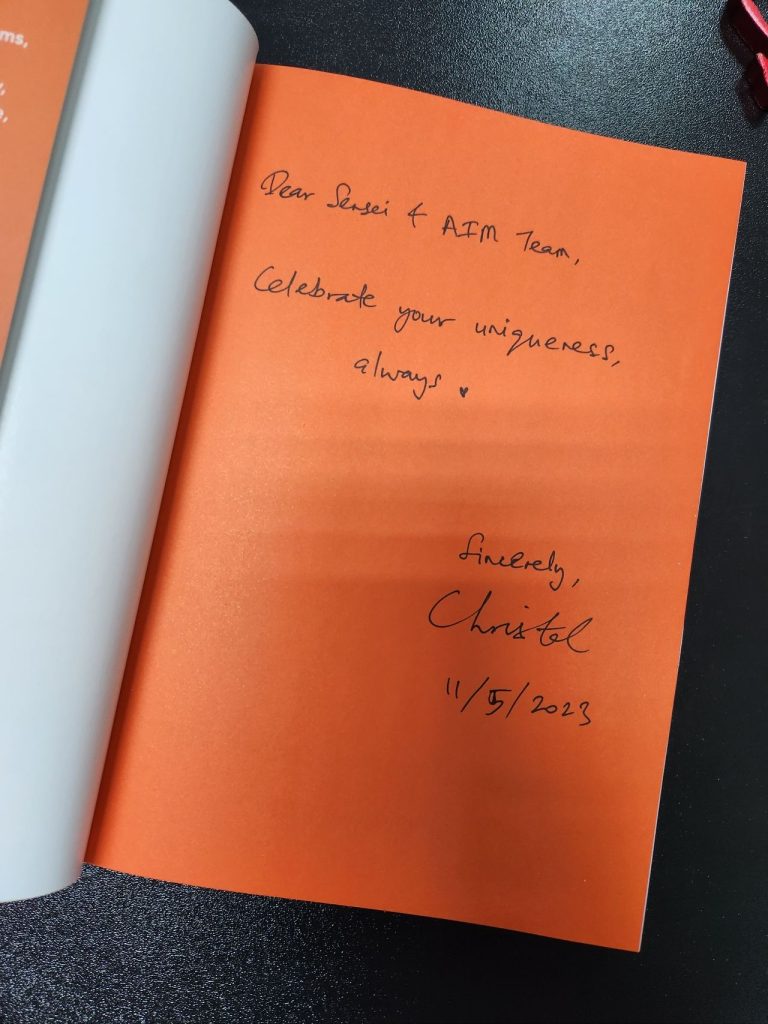 ms,
Dear Sensei & AIM Team,
Celebrate your uniqueness,
always ♥
Sincerely,
Christel
11/5/2023